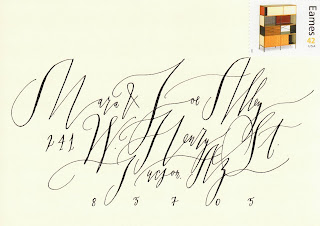 Eames
42
USA
Mara & Joe Alley
241 W. Henry St.
Tucson, AZ
85705